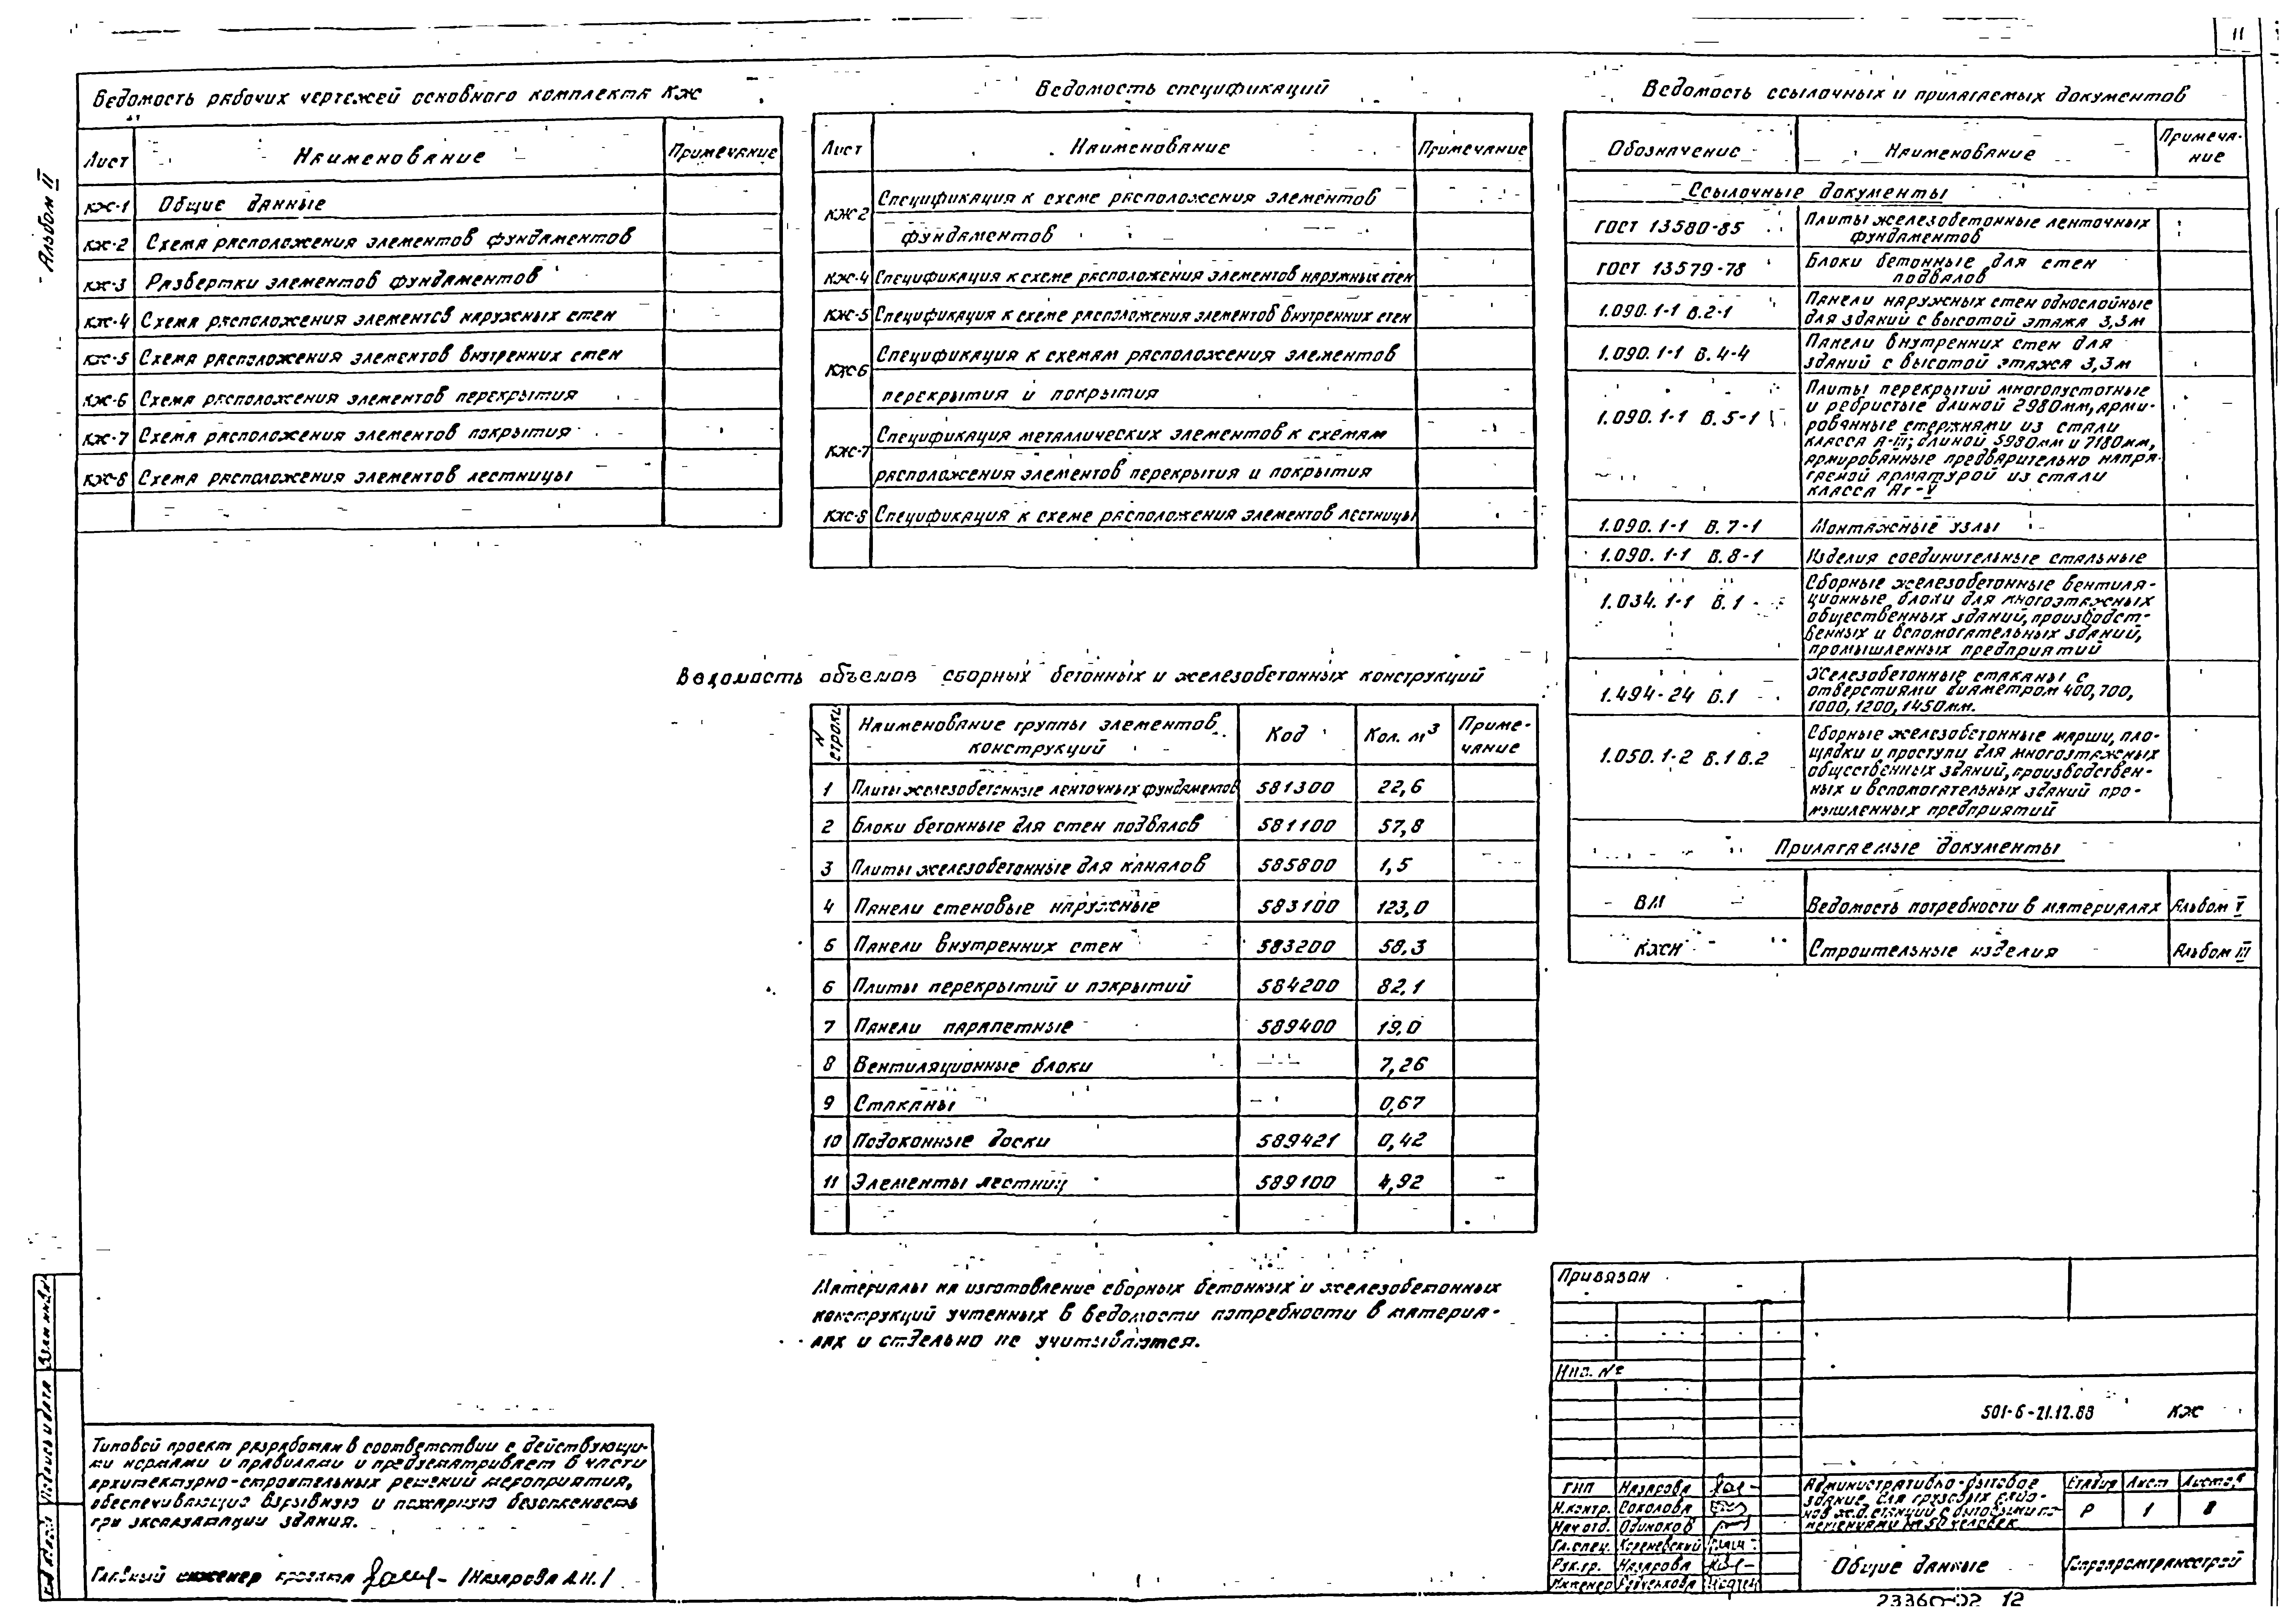 11
Альбом II
Ведомость рабочих чертежей основного комплекта КЖ
Лист Наименование Примечание
КЖ-1 Общие данные
КЖ-2 Схема расположения элементов фундаментов
КЖ-3 Развертки элементов фундаментов
КЖ-4 Схема расположения элементов наружных стен
КЖ-5 Схема расположения элементов внутренних стен
КЖ-6 Схема расположения элементов перекрытия
КЖ-7 Схема расположения элементов покрытия
КЖ-8 Схема расположения элементов лестницы
Ведомость спецификаций
Лист Наименование Примечание
КЖ-2 Спецификация к схеме расположения элементов
фундаментов
КЖ-4 Спецификация к схеме расположения элементов наружных стен
КЖ-5 Спецификация к схеме расположения элементов внутренних стен
КЖ-6 Спецификация к схемам расположения элементов
перекрытия и покрытия
КЖ-7 Спецификация металлических элементов к схемам
расположения элементов перекрытия и покрытия
КЖ-8 Спецификация к схеме расположения элементов лестницы
Ведомость ссылочных и прилагаемых документов
Обозначение Наименование Примеча-
ние
Ссылочные документы
ГОСТ 13580-85 Плиты железобетонные ленточных
фундаментов
ГОСТ 13579-78 Блоки бетонные для стен
подвалов
1.090.1-1 В.2-1 Панели наружных стен однослойные
для зданий с высотой этажа 3,3м
1.090.1-1 В.4-4 Панели внутренних стен для
зданий с высотой этажа 3,3м
1.090.1-1 В.5-1 Плиты перекрытий многопустотные
и ребристые длиной 2980мм, арми-
рованные стержнями из стали
класса А-III; длиной 5980мм и 7180мм,
армированные предварительно напря-
гаемой арматурой из стали
класса Ат-V
1.090.1-1 В.7-1 Монтажные узлы
1.090.1-1 В.8-1 Изделия соединительные стальные
1.034.1-1 В.1 Сборные железобетонные вентиля-
ционные блоки для многоэтажных
общественных зданий, производст-
венных и вспомогательных зданий,
промышленных предприятий
1.494-24 В.1 Железобетонные стаканы с
отверстиями диаметром 400, 700,
1000, 1200, 1450мм.
1.050.1-2 В.1 В.2 Сборные железобетонные марши, пло-
щадки и проступи для многоэтажных
общественных зданий, производствен-
ных и вспомогательных зданий про-
мышленных предприятий
Прилагаемые документы
ВМ Ведомость потребности в материалах Альбом V
КЖИ Строительные изделия Альбом III
Ведомость объемов сборных бетонных и железобетонных конструкций
N строки Наименование группы элементов конструкций Код Кол. м³ Приме-
чание
1 Плиты железобетонные ленточных фундаментов 581300 22,6
2 Блоки бетонные для стен подвалов 581100 57,8
3 Плиты железобетонные для каналов 585800 1,5
4 Панели стеновые наружные 583100 123,0
5 Панели внутренних стен 583200 58,3
6 Плиты перекрытий и покрытий 584200 82,1
7 Панели парапетные 589400 19,0
8 Вентиляционные блоки — 7,26
9 Стаканы — 0,67
10 Подоконные доски 589421 0,42
11 Элементы лестниц 589100 4,92
Материалы на изготовление сборных бетонных и железобетонных
конструкций учтенных в ведомости потребности в материа-
лах и отдельно не учитываются.
Типовой проект разработан в соответствии с действующи-
ми нормами и правилами и предусматривает в части
архитектурно-строительных решений мероприятия,
обеспечивающие взрывную и пожарную безопасность
при эксплуатации здания.
Главный инженер проекта /Назарова А.Н./
Взам инв
Подпись и дата
Привязан
Инв. №
501-6-21.12.88 КЖ
ГИП Назарова
Н.контр. Соколова
Нач отд. Одиноков
Гл.спец. Кореневский
Рук.гр. Назарова
Инженер
Административно-бытовое
здание для грузовых райо-
нов ж.д. станций с бытовыми по-
мещениями на 50 человек
Стадия Лист Листов
Р 1 8
Общие данные
Гипропромтрансстрой
23360-02 12